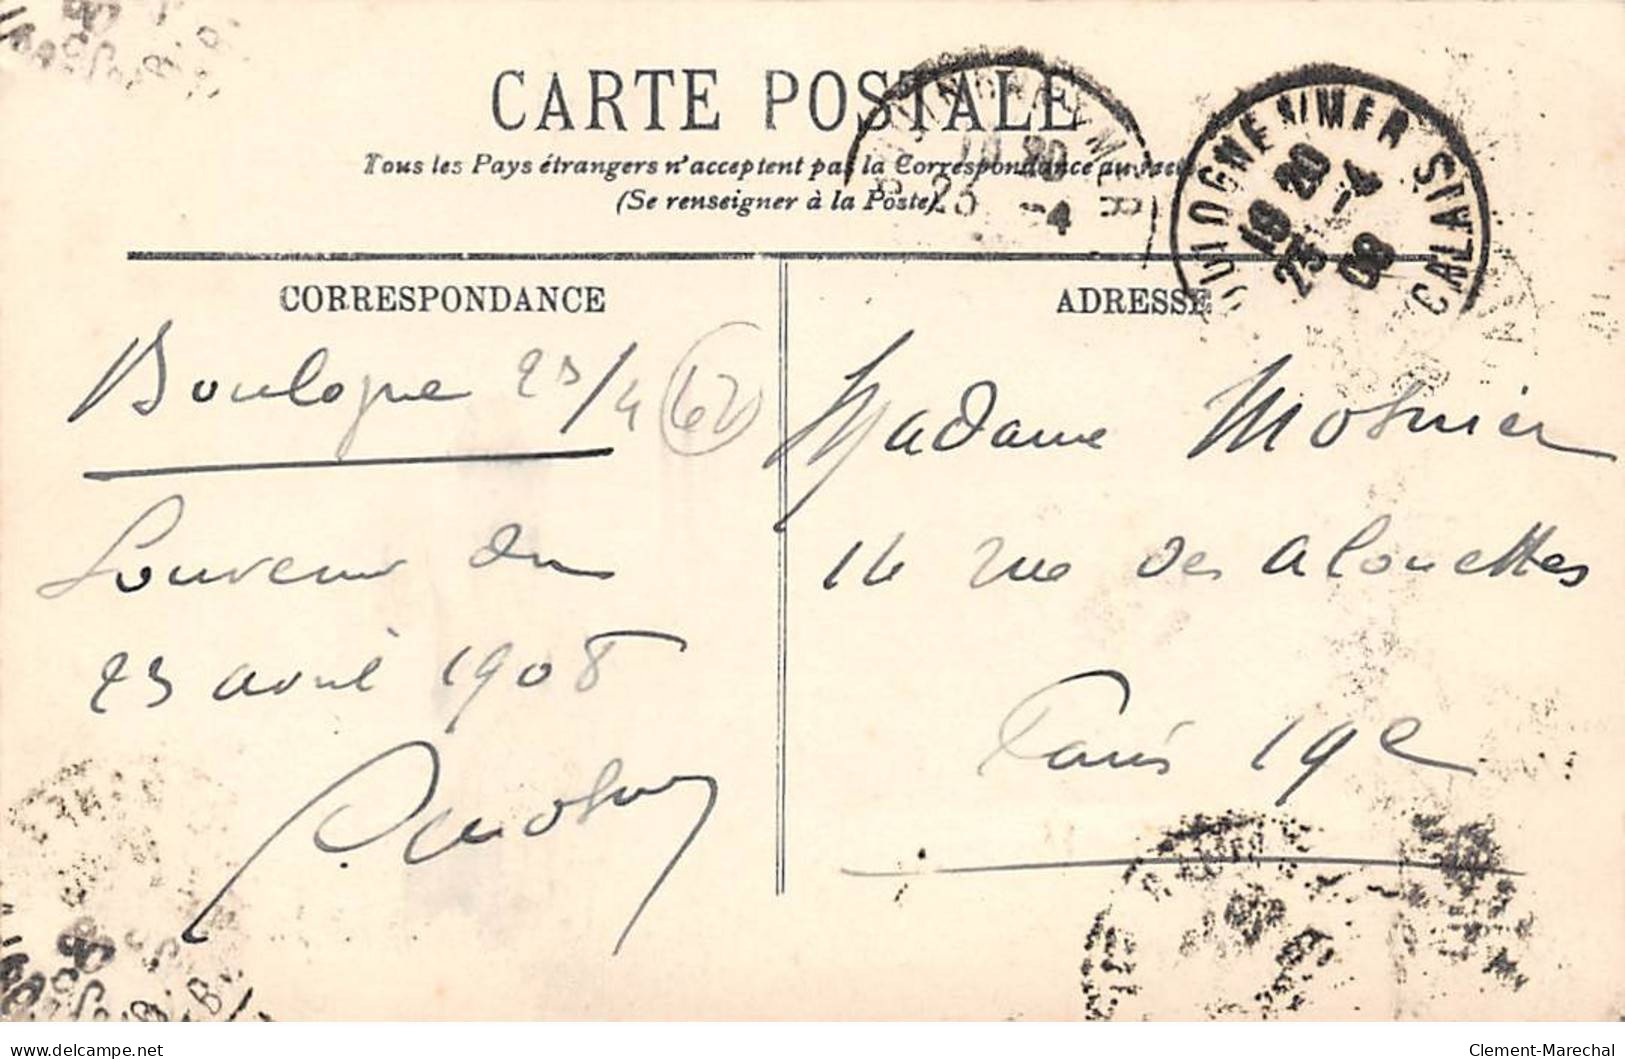 CARTE POSTALE
Tous les Pays étrangers n'acceptent pas la Correspondance au
(Se renseigner à la Poste)
CORRESPONDANCE
Boulogne 23/4 62
Souvenir du
23 avril 1908
ADRESSE
Madame
14 rue des alouettes
Paris 19e
OULOGNE S/MER
PAS DE CALAIS
19 20
23 -4
08
23 -4
delcampe.net
Clement-Marechal